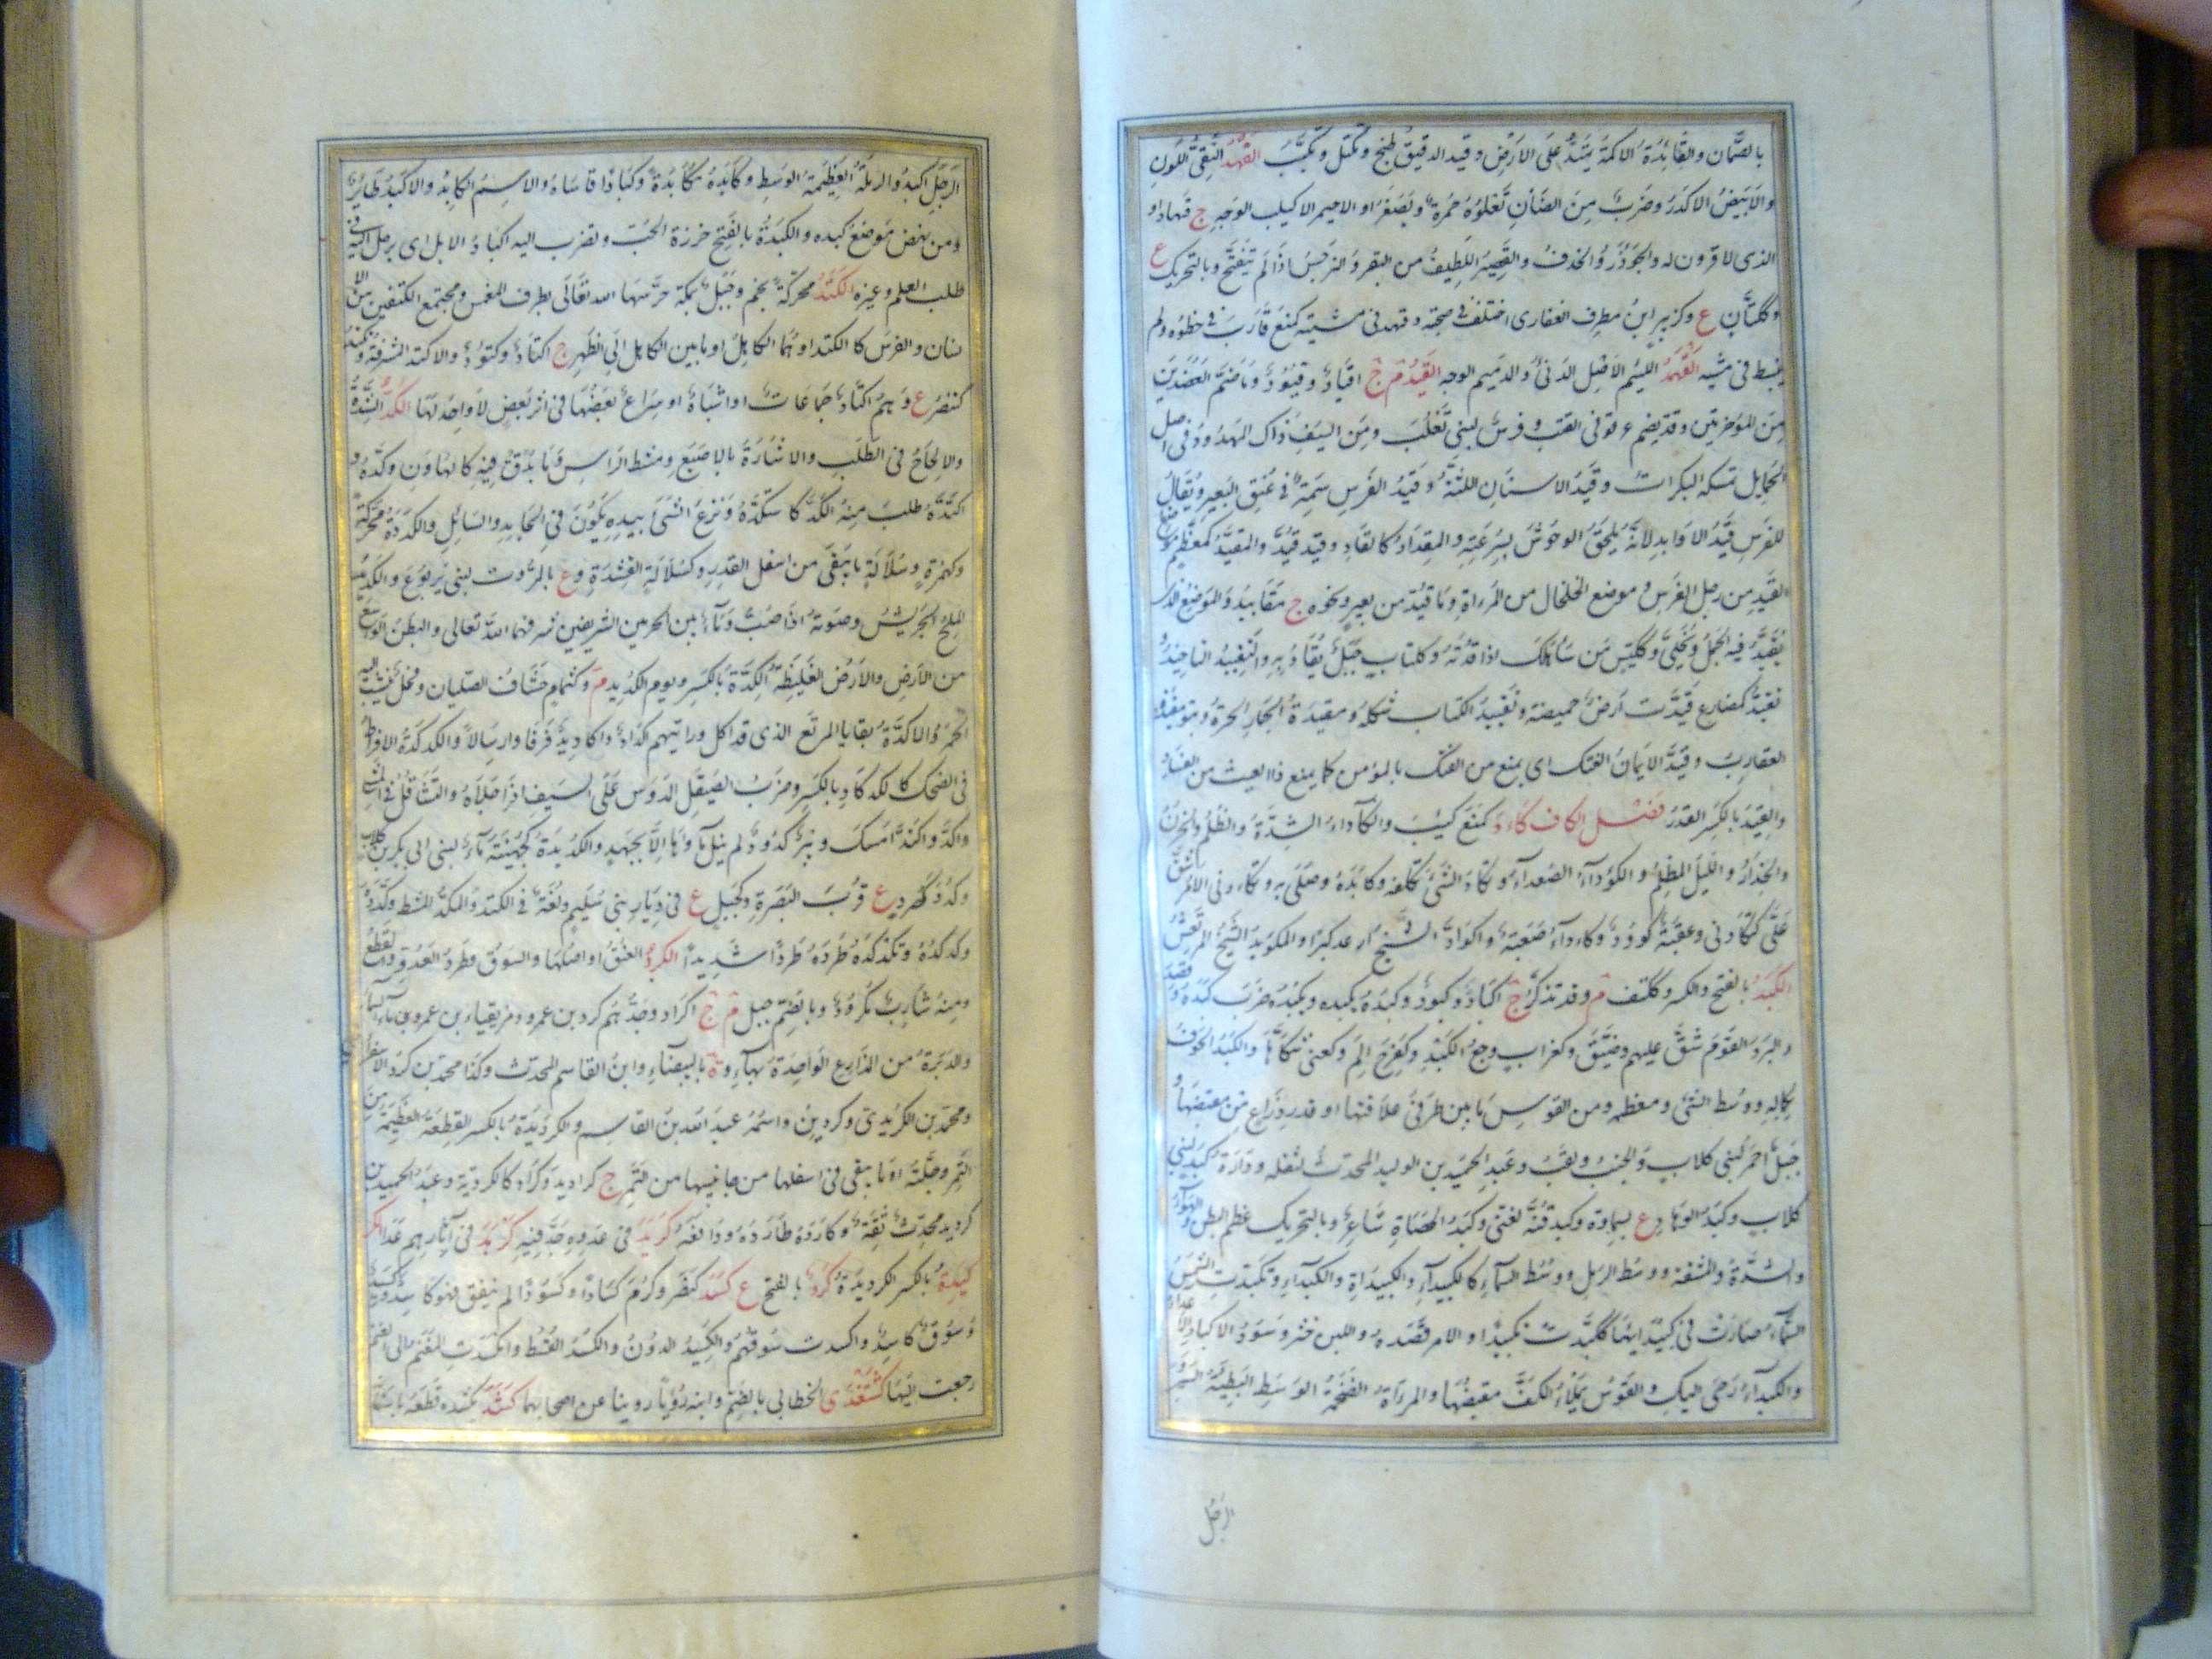 بالصَّمان والقائدة الاكمة يمتدّ على الارض وقيد الدقيق طبخ وتكتل وتكبّب القهد النقيّ اللون
والابيض الاكدر وضرب من الضأن تعلوه حمرة وتصغر او الاحيمر الاكيلب الوجه ج قهاد او
الذى لا قرون له والجؤذر والخذف والقصير اللطيف من البقر والنرجس اذا لم يتفتح وبالتحريك ع
وكزبير ابن مطرف الغفارى اختلف فى صحبته وقهد فى مشيته كمنع قارب فى خطوه ولم
ينبسط فى مشيه القهمد اللئيم الاصل الدنىّ والدميم الوجه القيد م ج اقياد وقيود وما ضمّ العضدين
من المؤخرتين وقد يضم عرقوتى القتب وفرس لبنى تغلب ومن السيف ذاك الممدود فى اصل
الحمايل تمسكه البكرات وقيد الاسنان اللثة وقيد الفرس سمة فى عنق البعير ويقال
للفرس قيد الاوابد لانه يلحق الوحوش بسرعته والمقدار كالقاد وقيد قيد والمقيد كمعظم موضع
القيد من رجل الفرس وموضع الخلخال من المرءاة وما قيد من بعير ونحوه ج مقاييد والموضع الذى
يقيد فيه الجمل ويخلى وككيس من ساهلك اذا قدته وككتاب حبل يقاد به والتقييد التاخيذ و
تقيد كمضارع قيدت ارض حميضة وتقييد الكتاب شكله ومقيدة الحمار الحرة وبنو مقيدة
العقارب وقيد الايمان الفتك اى يمنع من الفتك بالمؤمن كما يمنع ذا العيث من الفساد
والقيد بالكسر القدر فصل الكاف كاد كمنع كئب والكأداء الشدة والظلم والحزن
والحذار والليل المظلم والكؤداء الصعداء وتكأد الشئ تكلفه وكابده وصلى به وتكاءدنى الامر شقّ
علىّ كتكأدنى وعقبة كؤود وكاءداء صعبة واكوأد الشيخ ارعد كبرا والمكوئد الشيخ المرتعش
الكبد بالفتح والكسر وككتف م وقد تذكر ج اكباد وكبود وكبده يكبده ويكبده ضرب كبده وقصد
والبرد القوم شق عليهم وضيق وكغراب وجع الكبد وكفرح الم وكعنى شكاها والكبد الجوف
بكماله ووسط الشئ ومعظمه ومن القوس ما بين طرفى علاقتها او قدر ذراع من مقبضها و
جبل احمر لبنى كلاب والجنب ولقب عبد الحميد بن الوليد المحدث لثقله ودارة كبد لبنى
كلاب وكبد الوهاد ع بسماوة وكبد قنة لغنى وكبد الحصاة شاعر وبالتحريك عظم البطن والهواء
والشدة والمشقة ووسط الرمل ووسط السماء كالكبيداء والكبيداة والكبداء وتكبدت الشمس
السماء صارت فى كبيدائها ككبدت تكبيدا والامر قصده واللبن خثر وسود الاكباد الاعداء
والكبداء رحى اليد والقوس يملاء الكف مقبضها والمراة الضخمة الوسط البطيئة السير و
الرجل
الرجل اكبد والرملة العظيمة الوسط وكابده مكابدة وكبادا قاساه والاسم الكابد والاكبد طاير
ومن نهض موضع كبده والكبدة بالفتح خرزة الحب وتضرب اليه اكباد الابل اى يرحل اليه فى
طلب العلم وغيره الكتد محركة نجم وجبل بمكة حرسها الله تعالى بطرف المغمس ومجتمع الكتفين من الا
نسان والفرس كالكتد او هما الكاهل او ما بين الكاهل الى الظهر ج اكتاد وكتود والاكتد المشرفه وتكتد
كتنصر ع وهم اكتاد جماعات او اشباه او سراع بعضها فى اثر بعض لا واحد لها الكدّ الشدّة
والالحاح فى الطلب والاشارة بالاصبع ومشط الراس وما يدق فيه كالهاون وكده و
اكتده طلب منه الكد كاستكده ونزع الشئ بيده يكون فى الجامد والسائل والكددة محركة
وكهمزة وسلالة ما يبقى من اسفل القدر وكسلالة القشدة وع بالمروت لبنى يربوع والكديد
الملح الجريش وصوته اذا صبّ وماء بين الحرمين الشريفين شرفهما الله تعالى والبطن الواسع
من الارض والارض الغليظة كالكدة بالكسر ويوم الكديد م وكثمام حشاف الصليان وفحل ينسب اليه
الحمر والاكدة بقايا المرتع الذى قد اكل ورايتهم اكدادا واكاديد فرقا وارسالا والكدكدة الافراط
فى الضحك كالكدكاد بالكسر وضرب الصيقل المدوس على السيف اذا جلاه والتثاقل فى المشى
واكد واكتد امسك وبئر كدود لم ينل ماؤها الا بجهد والكديدة كجهينة ماء لبنى ابى بكر بن كلاب
وكدد كصرد ع قرب البصرة وكجبل ع فى ديار بنى سليم ولغة فى الكتد والمكد المشط وكدده
وكدكده وتكدكده طرده طردا شديدا الكرد العنق او اصلها والسوق وطرد العدو والقطع
ومنه شارب مكرود وبالضم جيل م ج اكراد وجدهم كرد بن عمرو مزيقياء بن عمرو بن ماء السماء
والدبرة من المزارع الواحدة بهاء وة بالبيضاء وابن القاسم المحدث وكذا محمد بن كرد الاسفرا
ومحمد بن الكريدى وكردين واسمه عبد الله بن القاسم والكرديدة بالكسر القطعة العظيمة من
التمر وجلته او ما يبقى فى اسفلها من جانبيها من التمر ج كراديد وكراد كالكردية وعبد الحميد بن
كرديد محدث ثقة وكارده طارده ودافعه كريد فى عدوه جدّ فيه كرمد فى آثارهم عدا الكر
كيدة بالكسر الكرديدة كزد بالفتح ع كسد كنصر وكرم كسادا وكسودا لم ينفق فهو كاسد وكسيد
وسوق كاسد واكسدت سوقهم والكسيد الدون والكسد القسط وانكسدت الغنم الى الغنم
رجعت اليها كشتغدى الخطابى بالضم وابنه رويا روينا عن اصحابهما كشد يكشده قطعه باسنانه